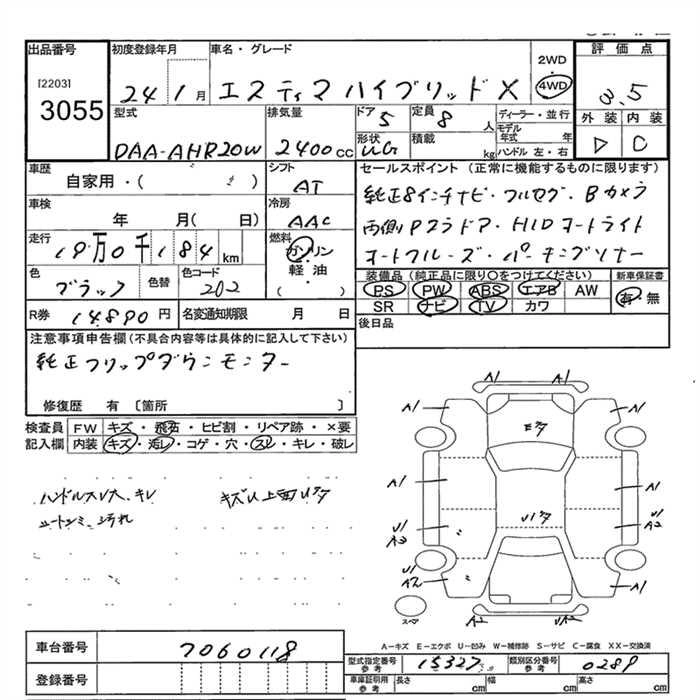 出品番号
[2203]
3055
初度登録年月
24 1月
車名・グレード
エスティマハイブリッドX
2WD
4WD
評価点
3.5
外装 内装
▷ C
型式
DAA-AHR20W
排気量
2400cc
ドア
5
定員
8人
形状
WG
積載
kg
ディーラー・並行
モデル年式 年
ハンドル 左・右
車歴
自家用・( )
シフト
AT
車検
年 月( 日)
冷房
AAC
走行
19万0千184km
燃料
ガソリン
軽油
( )
色
ブラック
色替
色コード
202
R券
14.890円
名変通知期限 月 日
セールスポイント (正常に機能するものに限ります)
純正8インチナビ・フルセグ・Bカメラ
両側Pスラドア・HIDオートライト
オートクルーズ・パーキングソナー
装備品 (純正品に限り○をつけてください)
新車保証書
PS PW ABS エアB AW
有・無
SR ナビ TV カワ
後日品
注意事項申告欄(不具合内容等は具体的に記入して下さい)
純正フリップダウンモニター
修復歴 有 〔箇所 〕
検査員記入欄
FW キズ・飛石・ヒビ割・リペア跡・×要
内装 キズ・汚レ・コゲ・穴・スレ・キレ・破レ
ハンドルスレ大、キレ
シートシミ、汚れ
A1 A1
A1 A1
A1 A1
U1 A3
U1 A2
U1 A2
A1
A2 UA2
スペア
A-キズ E-エクボ U-凹み W-補修跡 S-サビ C-腐食 XX-交換済
車台番号
7060118
登録番号
型式指定番号 参考
15327
類別区分番号 参考
0289
車庫証明用 参考
長さ cm 幅 cm 高さ cm